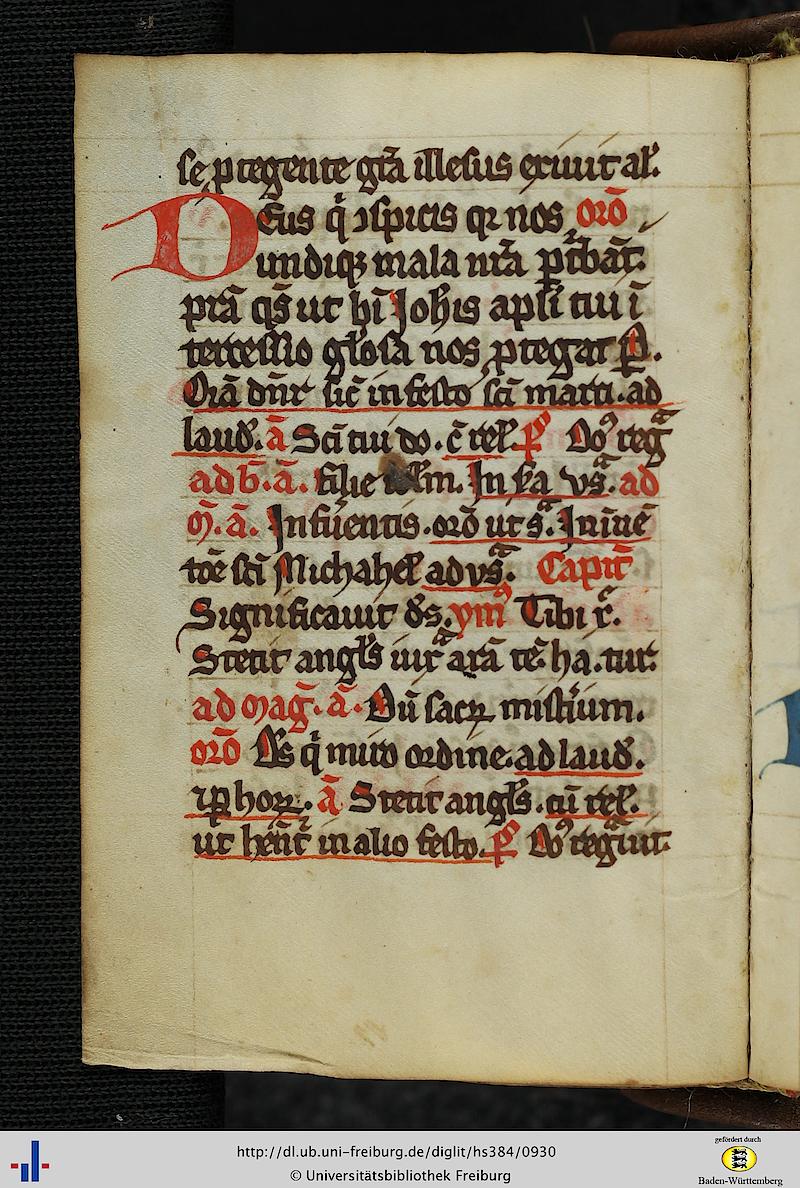 se ꝓtegente gr̃a illesus exiuit al'.
Deus q̃ ↄspicis qꝛ nos orõ
undiqꝫ mala nr̃a ꝑt̃bãt.
pr̃a qs̃ ut bt̃i Johis apl̃i tui ĩ
tercessio gl̃osa nos ꝓtegat P̲.
Orã dñr sic̃ in festo sc̃i marci. ad
laud̃. ã Sc̃i tui do. c̃ rel̃. p̃s Dõs reg̃
ad b̃. ã. filie irl̃m. In sc̃a vs̃. ad
m̃. ã. Inf̃uentis. orõ ut s̃. In iuẽ
tõe sc̃i Michahel̃ ad vs̃. Capit̃
Significauit d̃s. ymꝰ Tibi x̃.
Stetit angl̃s iux̃ arã tẽ. ha. tur.
ad mag̃. ã. Dũ sacꝝ mist̃ium.
orõ Ds̃ q̃ miro ordine. ad laud̃.
⁊ ꝑ horꝝ. ã Stetit angl̃s. cũ rel̃.
ut hẽnt̃ in alio festo. p̃s Dõs reg̃uit.
http://dl.ub.uni-freiburg.de/diglit/hs384/0930
© Universitätsbibliothek Freiburg
gefördert durch
Baden-Württemberg